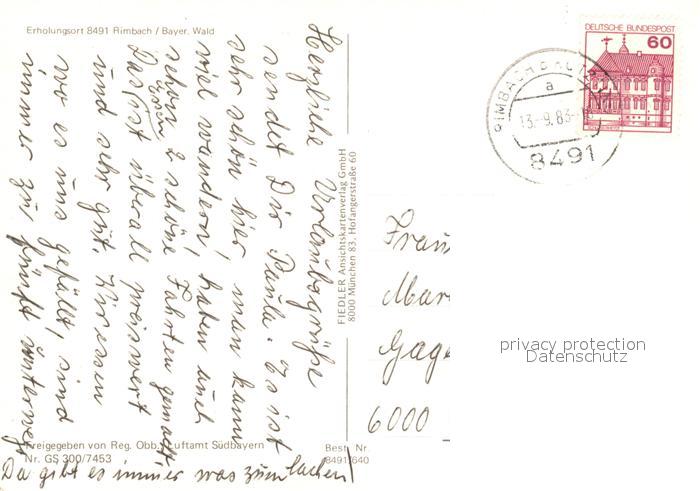 Erholungsort 8491 Rimbach / Bayer. Wald
Herzliche Urlaubsgrüße
sendet Dir Paula. Es ist
sehr schön hier, man kann
viel wandern, haben auch
schon 2 schöne Fahrten gemacht,
Das Essen ist überall preiswert
und sehr gut. Wir essen
wo es uns gefällt, sind
immer zu fünft unterwegs
Da gibt es immer was zum lachen!
Freigegeben von Reg. Obb. Luftamt Südbayern
Nr. GS 300/7453
Best. Nr.
8491/640
FIEDLER Ansichtskartenverlag GmbH
8000 München 83, Hofangerstraße 60
DEUTSCHE BUNDESPOST
60
RIMBACH
a
13.-9.83
8491
Frau
Mar
Gage
6000
privacy protection
Datenschutz